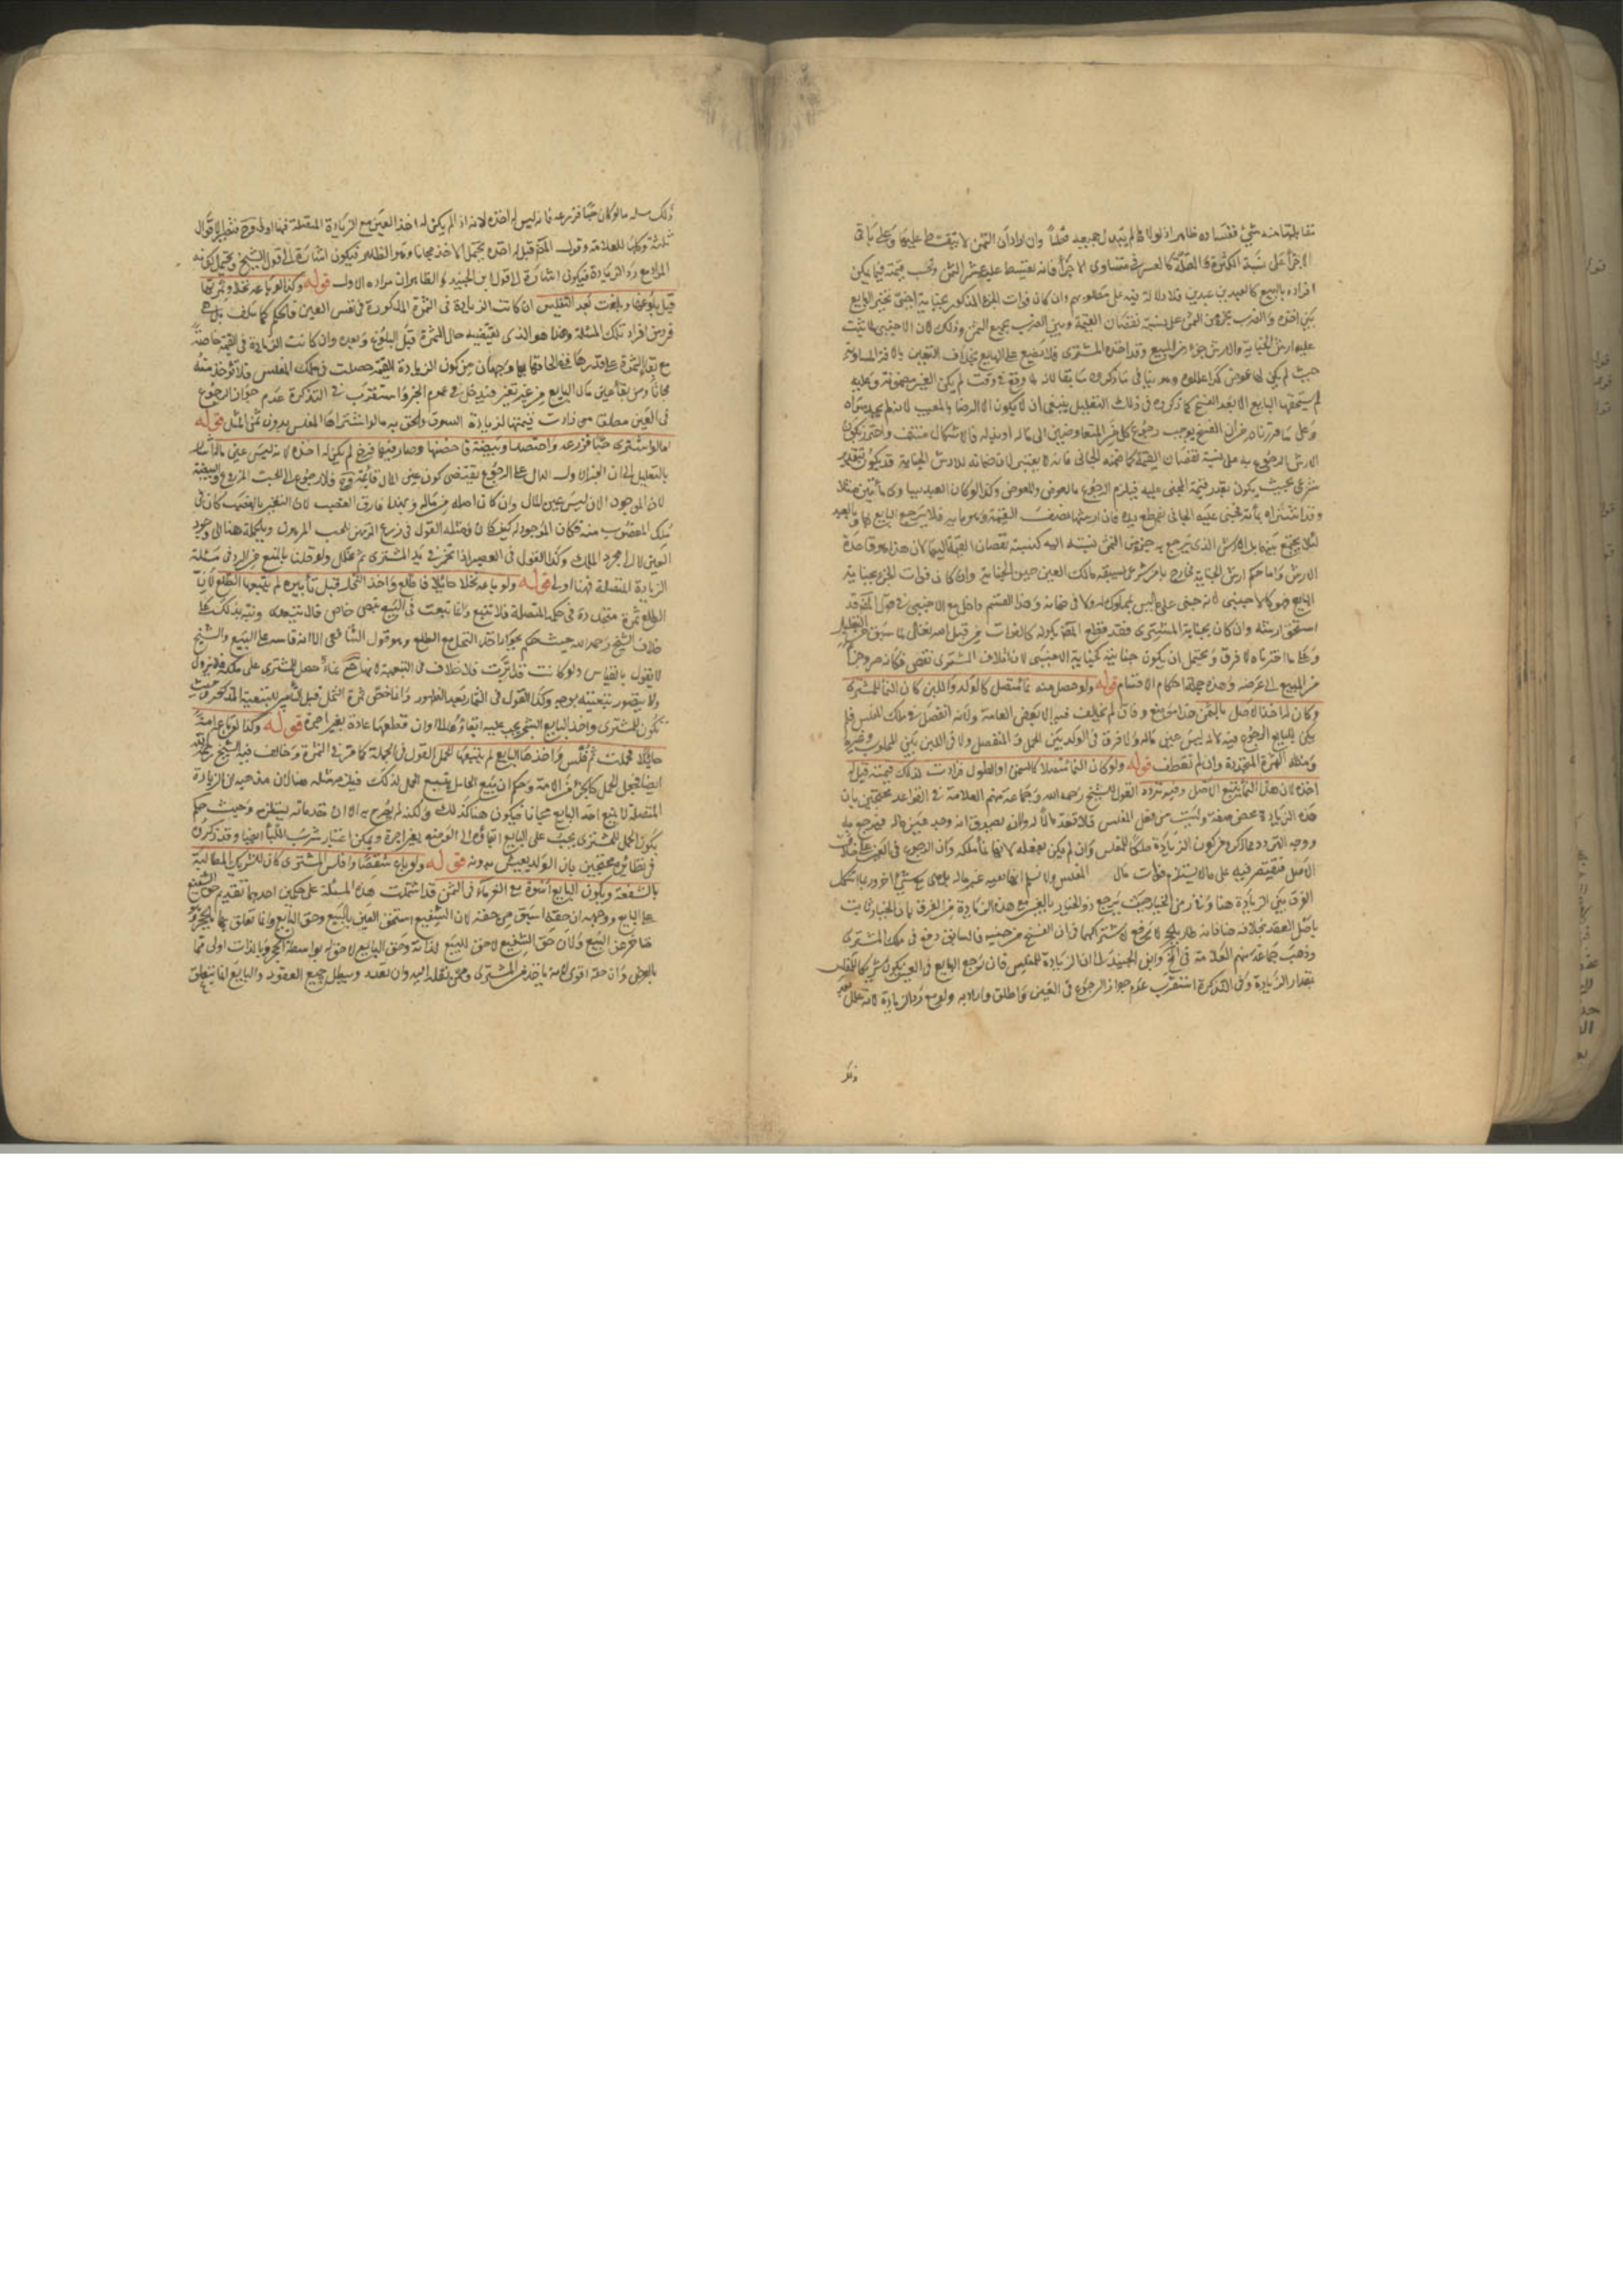 تقابلها منه شيء ففساده ظاهر اذ لولاه لم يبذل جميعه قطعا وان اراد ان الثمن لا يتقسط عليها وعلى باقي
الاجزاء على نسبة الكثرة والقلة كالعشر في متساوى الاجزاء فانه يقسط عليه عشر الثمن وتحسب بقيمة فيما يمكن
افراده بالبيع كالعبد من عبدين فلا دلالة فيه على مطلوبهم وان كان فوات الجزء المذكور بجناية اجنبي تخير البايع
بين اخذه والضرب بجزء من الثمن على نسبة نقصان القيمة وبين الضرب بجميع الثمن وذلك لان الاجنبي لما ثبت
عليه ارش الجناية والارش جزء من المبيع وقد اخذه المشترى فلا يضيع على البايع بخلاف التعيب بالافة السماوية
حيث لم يكن لها عوض كذا عللوه وهو ينافي ما ذكروه سابقا لانه وقع في وقت لم يكن العين مضمونة وعليه
لم يستحقها البايع الا بعد الفسخ كما ذكروه في ذلك التعليل ينبغى ان لا يكون الا الرضا بالمعيب
وعلى ما قررناه من ان الفسخ يوجب رجوع كل من المتعاوضين الى ماله او بدله فالاشكال منتف
الارش الرجوع به على نسبة نقصان القيمة كما ضمنه الجاني فانه لا يعتبر لان ضمانه للارش الجناية قد يكون بتقدير
شرعي بحيث يكون بقدر قيمة المجني عليه فيلزم الرجوع بالعوض والمعوض وكذا لو كان العبد يساوى مأتين مثلا
وقد اشتراه بمأة فجنى عليه الجاني بقطع يده فان ارشها نصف القيمة وهو مأة فلا يرجع البايع بها وبالعبد
لئلا يجتمع بينهما بل الارش الذي يرجع به جزء من الثمن نسبته اليه كنسبة نقصان القيمة اليها لان هذا هو قاعدة
الارش واما حكم ارش الجناية فخارج بامر شرعي يستحقه مالك العين حين الجناية وان كان فوات الجزء بجناية
البايع فهو كالاجنبي لانه جنى على ما ليس بمملوك له ولا في ضمانه وهذا القسم داخل مع الاجنبي في قول المصنف قد
استحق ارشه وان كان بجناية المشترى فقد قطع المصنف بكونه كالفوات من قبل الله تعالى لما سبق من التعليل
وعلى ما اخترناه لا فرق ويحتمل ان يكون جنايته كجناية الاجنبي لان اتلاف المشترى نقص فكأنه صرف جزءا
من المبيع الى غرضه وهذه جملة احكام الاقسام قوله ولو حصل منه نماء منفصل كالولد واللبن كان النماء للمشترى
وكان له اخذ الاصل بالثمن هذا موضع وفاق لم يخالف فيه الا بعض العامة ولانه انفصل في ملك المفلس فلم
يكن للبايع الرجوع فيه لانه ليس عين ماله ولا فرق في الولد بين الحمل والمنفصل ولا في اللبن بين المحلوب وغيره
ومثله الثمرة المتجددة وان لم تقطف قوله ولو كان النماء متصلا كالسمن او الطول فزادت لذلك قيمته قيل له
اخذه لان هذا النماء يتبع الاصل وفيه تردد القول للشيخ رحمه الله وجماعة منهم العلامة في القواعد محتجين بان
هذه الزيادة محض صفة وليست من فعل المفلس فلا تعد مالا له ولانه يصدق انه وجد عين ماله فيرجع به
ووجه التردد مما ذكر ومن كون الزيادة ملكا للمفلس وان لم يكن بفعله لانها نماء ملكه ولان الرجوع في العين على خلاف
الاصل فيقتصر فيه على ما لا يستلزم فوات مال المفلس ولا نسلم انها بعينه عين ماله بل هي مع شيء اخر وربما اشكل
الفرق بين الزيادة هنا وزمن الخيار حيث يرجع ذو الخيار بالعين مع هذه الزيادة من الفرق بان الخيار ثابت
باصل العقد بخلافه هنا فانه طار بالحجر لا يرفع لاشتراكهما في ان الفسخ من حينه فالسابق وقع في ملك المشترى
وذهب جماعة منهم العلامة في المختلف وابن الجنيد الى ان الزيادة للمفلس فان رجع البايع في العين يكون شريكا للمفلس
بمقدار الزيادة وفي التذكرة استقرب عدم جواز الرجوع في العين واطلق واراد به ولو مع رد الزيادة لانه علل بعد
ذلك
ذلك مسئلة ما لو كان حبا فزرعه فانه ليس له اخذه لانه اذا لم يكن له اخذ العين مع الزيادة المتصلة فهنا اولى وح فالاقوال
ثلثة وكلها للعلامة وقول المصنف قيل له اخذه يحتمل الاخذ مجانا وهو الظاهر فيكون اشارة الى قول الشيخ ويحتمل كونه
المراد مع رد الزيادة فيكون اشارة الى قول ابن الجنيد والظاهر ان مراده الاول قوله وكذا لو باعه نخلا وثمرتها
قبل بلوغها وبلغت بعد التفليس ان كانت الزيادة في الثمرة المذكورة في نفس العين فالحكم كما سلف بل هي
فرد من افراد تلك المسئلة وهذا هو الذي يقتضيه حال الثمرة قبل البلوغ وبعده وان كانت الزيادة في القيمة خاصة
مع بقاء الثمرة على قدرها ففي الحاقها بها وجهان من كون الزيادة القيمة حصلت في ملك المفلس فلا تؤخذ منه
مجانا ومن بقاء عين مال البايع من غير تغير فيدخل في عموم الخبر واستقرب في التذكرة عدم جواز الرجوع
في العين مطلقا متى زادت قيمتها لزيادة السوق والحق به ما لو اشتراها المفلس بدون ثمن المثل قوله
اما لو اشترى حبا فزرعه واحصد او بيضة فاحضنها وصار منها فرخ لم يكن له اخذه لانه ليس عين ماله اشار
بالتعليل الى ان الخبر الاول الدال على الرجوع يقتضى كون عين المال قائمة موجودة فلا رجوع الى الحب المزروع والبيضة
لان الموجود الان ليس عين المال وان كان اصله من ماله وبهذا فارق الغصب لان التغير بالغصب كان في
ملك المغصوب منه فكان الموجود له كيف كان ومثله القول في زرع المرتهن الحب المرهون وبالجملة هنا الى وجود
العين لا الى مجرد الملك وكذا القول في العصير اذا تخمر في يد المشترى ثم تخلل ولو قلنا بالمنع من الرد في مسئلة
الزيادة المتصلة فهنا اولى قوله ولو باعه نخلا حائلا فاطلع واخذ النخل قبل تأبيره لم يتبعها الطلع لان
الطلع ثمرة متجددة في حكم المنفصلة فلا تتبع وانما تبعت في البيع بنص خاص قال بتبعيته ونبه بذلك على
خلاف الشيخ رحمه الله حيث حكم بجواز اخذ النخل مع الطلع وهو قول الشافعي الا انه قاسه على البيع والشيخ
لا يقول بالقياس ولو كانت قد ابرت فلا خلاف في التبعية لانها ح نماء حصل للمشترى على ملكه فلا يزول
ولا يتصور تبعيته بوجه وكذا القول في الثمار بعد الظهور وانما خص ثمرة النخل قبل التأبير للتبعية المذكورة وحيث
تكون للمشترى واخذ البايع الشجر يجب عليه ابقاؤها الى اوان قطعها عادة بغير اجرة قوله وكذا لو باع امة
حايلا فحملت ثم فلس واخذها البايع لم يتبعها الحمل القول في الحملة كما مر في الثمرة وخالف فيه الشيخ رحمه الله
ايضا فجعل الحمل كالجزء من الامة وحكم ان بيع الحامل يتبع الحمل لذلك فيلزم مثله هنا لان مذهبه ان الزيادة
المتصلة لا تمنع اخذ البايع مجانا فيكون هنا كذلك ولكنه لم يصرح به الا ان قواعده يستلزمه وحيث حكم
بكون الحمل للمشترى يجب على البايع ابقاؤه الى الوضع بغير اجرة ويمكن اعتبار شرب اللباء ايضا وقد ذكروه
في نظائره محتجين بان الولد لا يعيش بدونه قوله ولو باع شقصا وافلس المشترى كان للشريك المطالبة
بالشفعة ويكون البايع اسوة مع الغرماء في الثمن قد اشتملت هذه المسئلة على حكمين احدهما تقديم حق الشفيع
على البايع ووجهه ان حقه اسبق من حقه لان الشفيع استحق العين بالبيع وحق البايع انما تعلق بها بالحجر وهو
متاخر عن البيع ولان حق الشفيع لاحق للبيع لذاته وحق البايع لاحق له بواسطة الحجر وما بالذات اولى مما
بالعرض ولان حقه اقوى لانه ياخذ من المشترى وممن نقله اليه وان تعدد ويبطل جميع العقود والبايع انما يتعلق